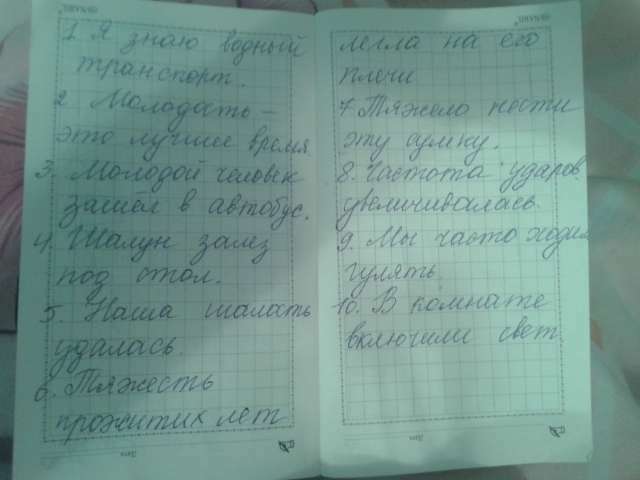 1 Я знаю водный
транспорт.
2 Молодость –
это лучшее время.
3. Молодой человек
зашёл в автобус.
4. Шалун залез
под стол.
5. Наша шалость
удалась.
6. Тяжесть
прожитих лет
легла на его
плечи
7. Тяжело нести
эту сумку.
8. Частота ударов
увеличивалась.
9. Мы часто ходим
гулять.
10. В комнате
включили свет
Дата
Дата